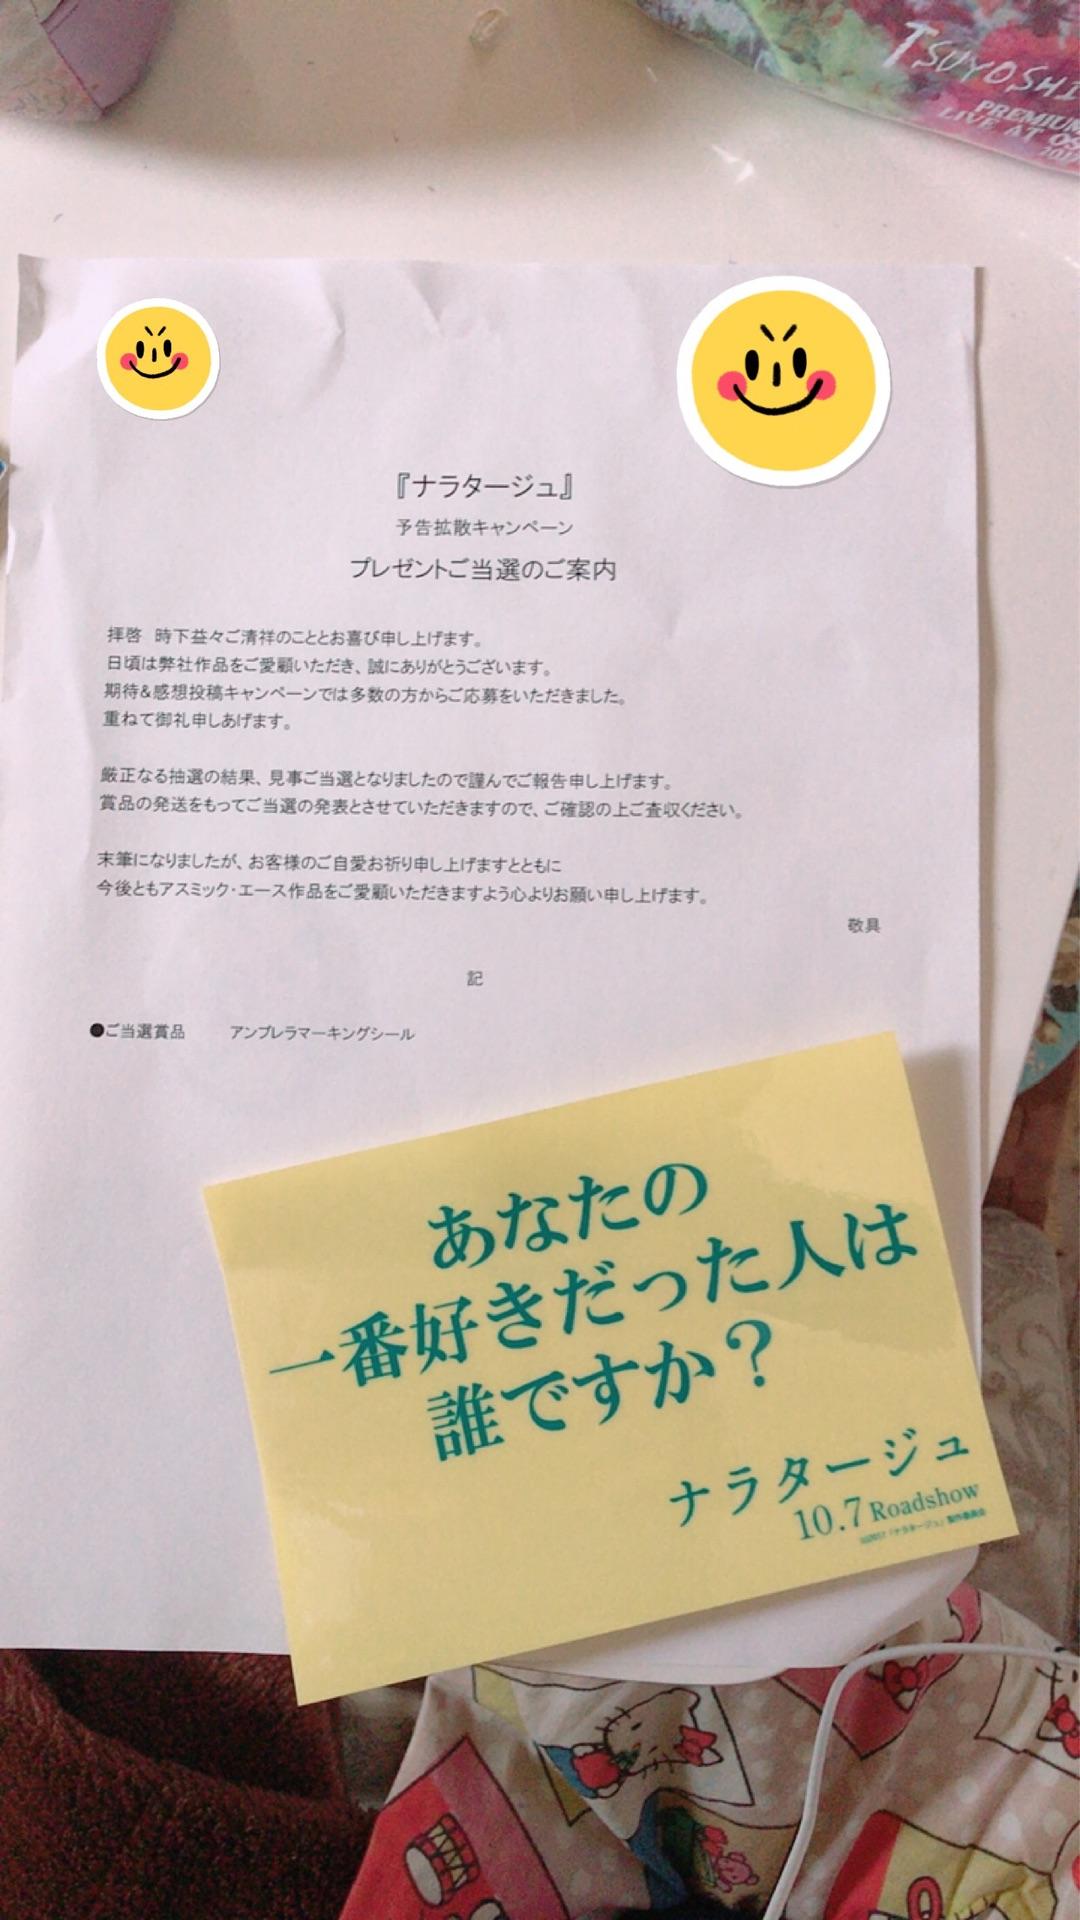 TSUYOSHI
PREMIUM
LIVE AT OS
2017
『ナラタージュ』
予告拡散キャンペーン
プレゼントご当選のご案内
拝啓　時下益々ご清祥のこととお喜び申し上げます。
日頃は弊社作品をご愛顧いただき、誠にありがとうございます。
期待&感想投稿キャンペーンでは多数の方からご応募をいただきました。
重ねて御礼申しあげます。
厳正なる抽選の結果、見事ご当選となりましたので謹んでご報告申し上げます。
賞品の発送をもってご当選の発表とさせていただきますので、ご確認の上ご査収ください。
末筆になりましたが、お客様のご自愛お祈り申し上げますとともに
今後ともアスミック・エース作品をご愛顧いただきますよう心よりお願い申し上げます。
敬具
記
●ご当選賞品　　アンブレラマーキングシール
あなたの
一番好きだった人は
誰ですか？
ナラタージュ
10.7 Roadshow
©2017「ナラタージュ」製作委員会